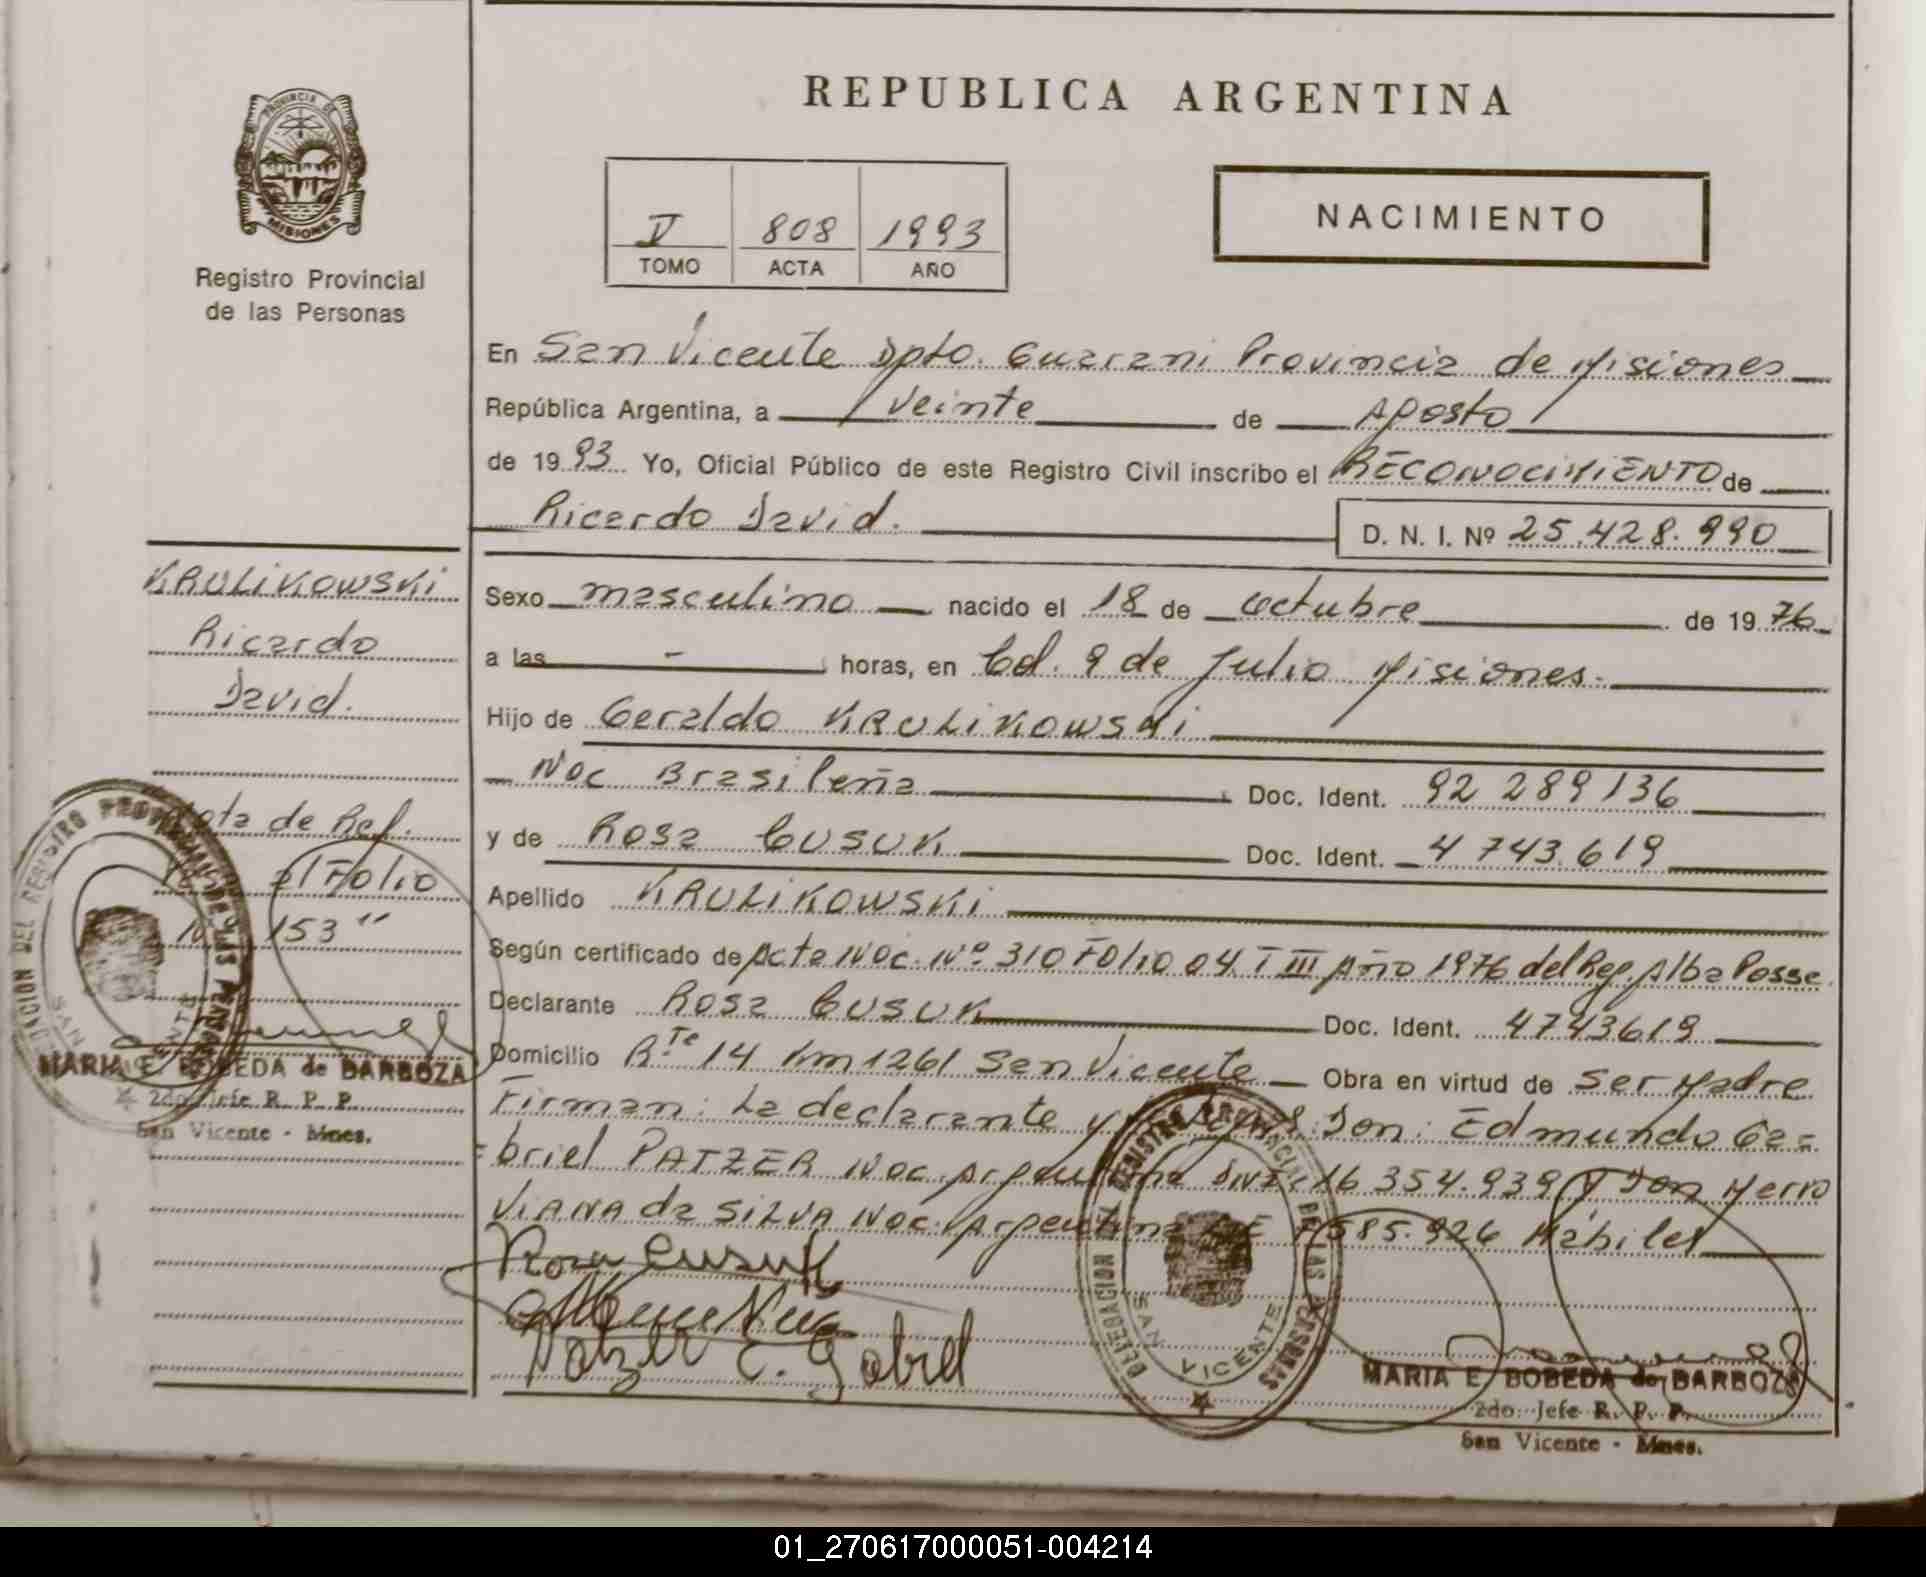 REPUBLICA ARGENTINA
PROVINCIA DE
MISIONES
Registro Provincial
de las Personas
V 808 1993
TOMO ACTA AÑO
NACIMIENTO
En San Vicente Dpto. Guarani Provincia de Misiones
República Argentina, a veinte de Agosto
de 1993 Yo, Oficial Público de este Registro Civil inscribo el RECONOCIMIENTO de
Ricardo David. D. N. I. Nº 25.428.990
KRULIKOWSKI
Ricardo
David.
Nota de Ref.
al Folio
Nº 153"
MARIA E. BOBEDA de BARBOZA
2do. Jefe R. P. P.
San Vicente - Mnes.
Sexo masculino nacido el 18 de octubre de 1976
a las - horas, en Col. 9 de Julio Misiones.
Hijo de Geraldo KRULIKOWSKI
Nac Brasileña Doc. Ident. 92 289 136
y de Rosa CUSUK Doc. Ident. 4 743.619
Apellido KRULIKOWSKI
Según certificado de Acta Nac. Nº 310 Folio 04 T III Año 1976 del Reg. Alba Posse
Declarante Rosa CUSUK Doc. Ident. 4743619
Domicilio R.Te 14 Km 1261 San Vicente Obra en virtud de ser Madre
Firman: La declarante y Don: Edmundo Ga=
=briel PATZER Nac. Argentina DNI. 16 354.939 Y Don
VIANA da SILVA Nac. Argentina 585.926 Hábiles
Rosa Cusuk
Patzer E. Gabriel
DELEGACION DEL REGISTRO PROVINCIAL DE LAS PERSONAS
SAN VICENTE
MARIA E. BOBEDA de BARBOZA
2do. Jefe R. P. P.
San Vicente - Mnes.
01_270617000051-004214